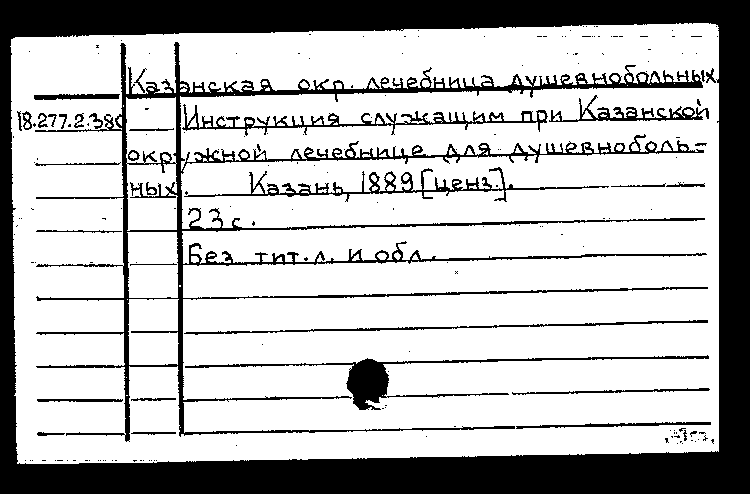 Казанская окр. лечебница душевнобольных.
18.277.2.380 Инструкция служащим при Казанской
окружной лечебнице для душевноболь=
ных. Казань, 1889 [ценз.].
23 с.
Без тит. л. и обл.